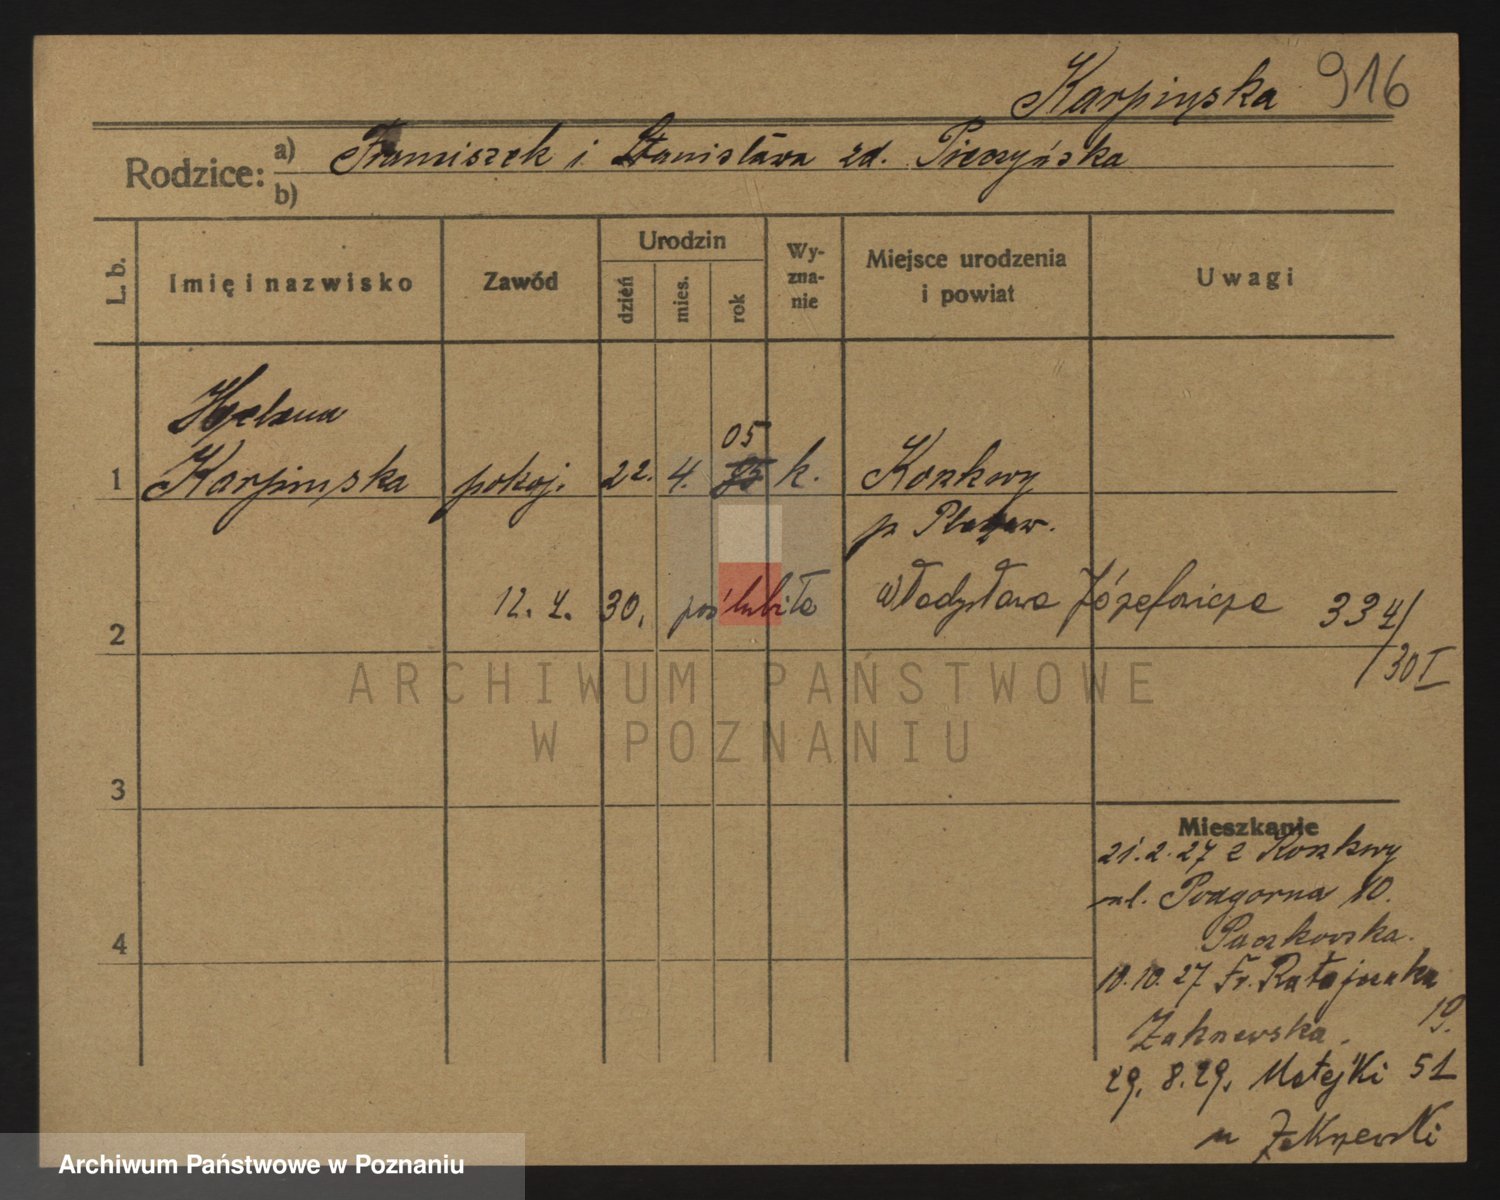 Karpińska 916
Rodzice: a) Franciszek i Stanisława zd. Pieczyńska
b)
L. b.
Imię i nazwisko
Zawód
Urodzin
dzień
mies.
rok
Wy-
zna-
nie
Miejsce urodzenia
i powiat
Uwagi
Helena
05
1 Karpińska pokoj. 22. 4. k. Kozkwy
p Pleszew.
2 12. 4. 30. poślubiła Władysława Józefowicza 334/
/30 I
ARCHIWUM PAŃSTWOWE
W POZNANIU
3
Mieszkanie
21. 2. 27 z Kozkwy
ul. Podgorna 10.
Paczkowska.
4
10. 10. 27 Fr. Ratajczaka
19.
29. 8. 29. Matejki 51
u
Archiwum Państwowe w Poznaniu